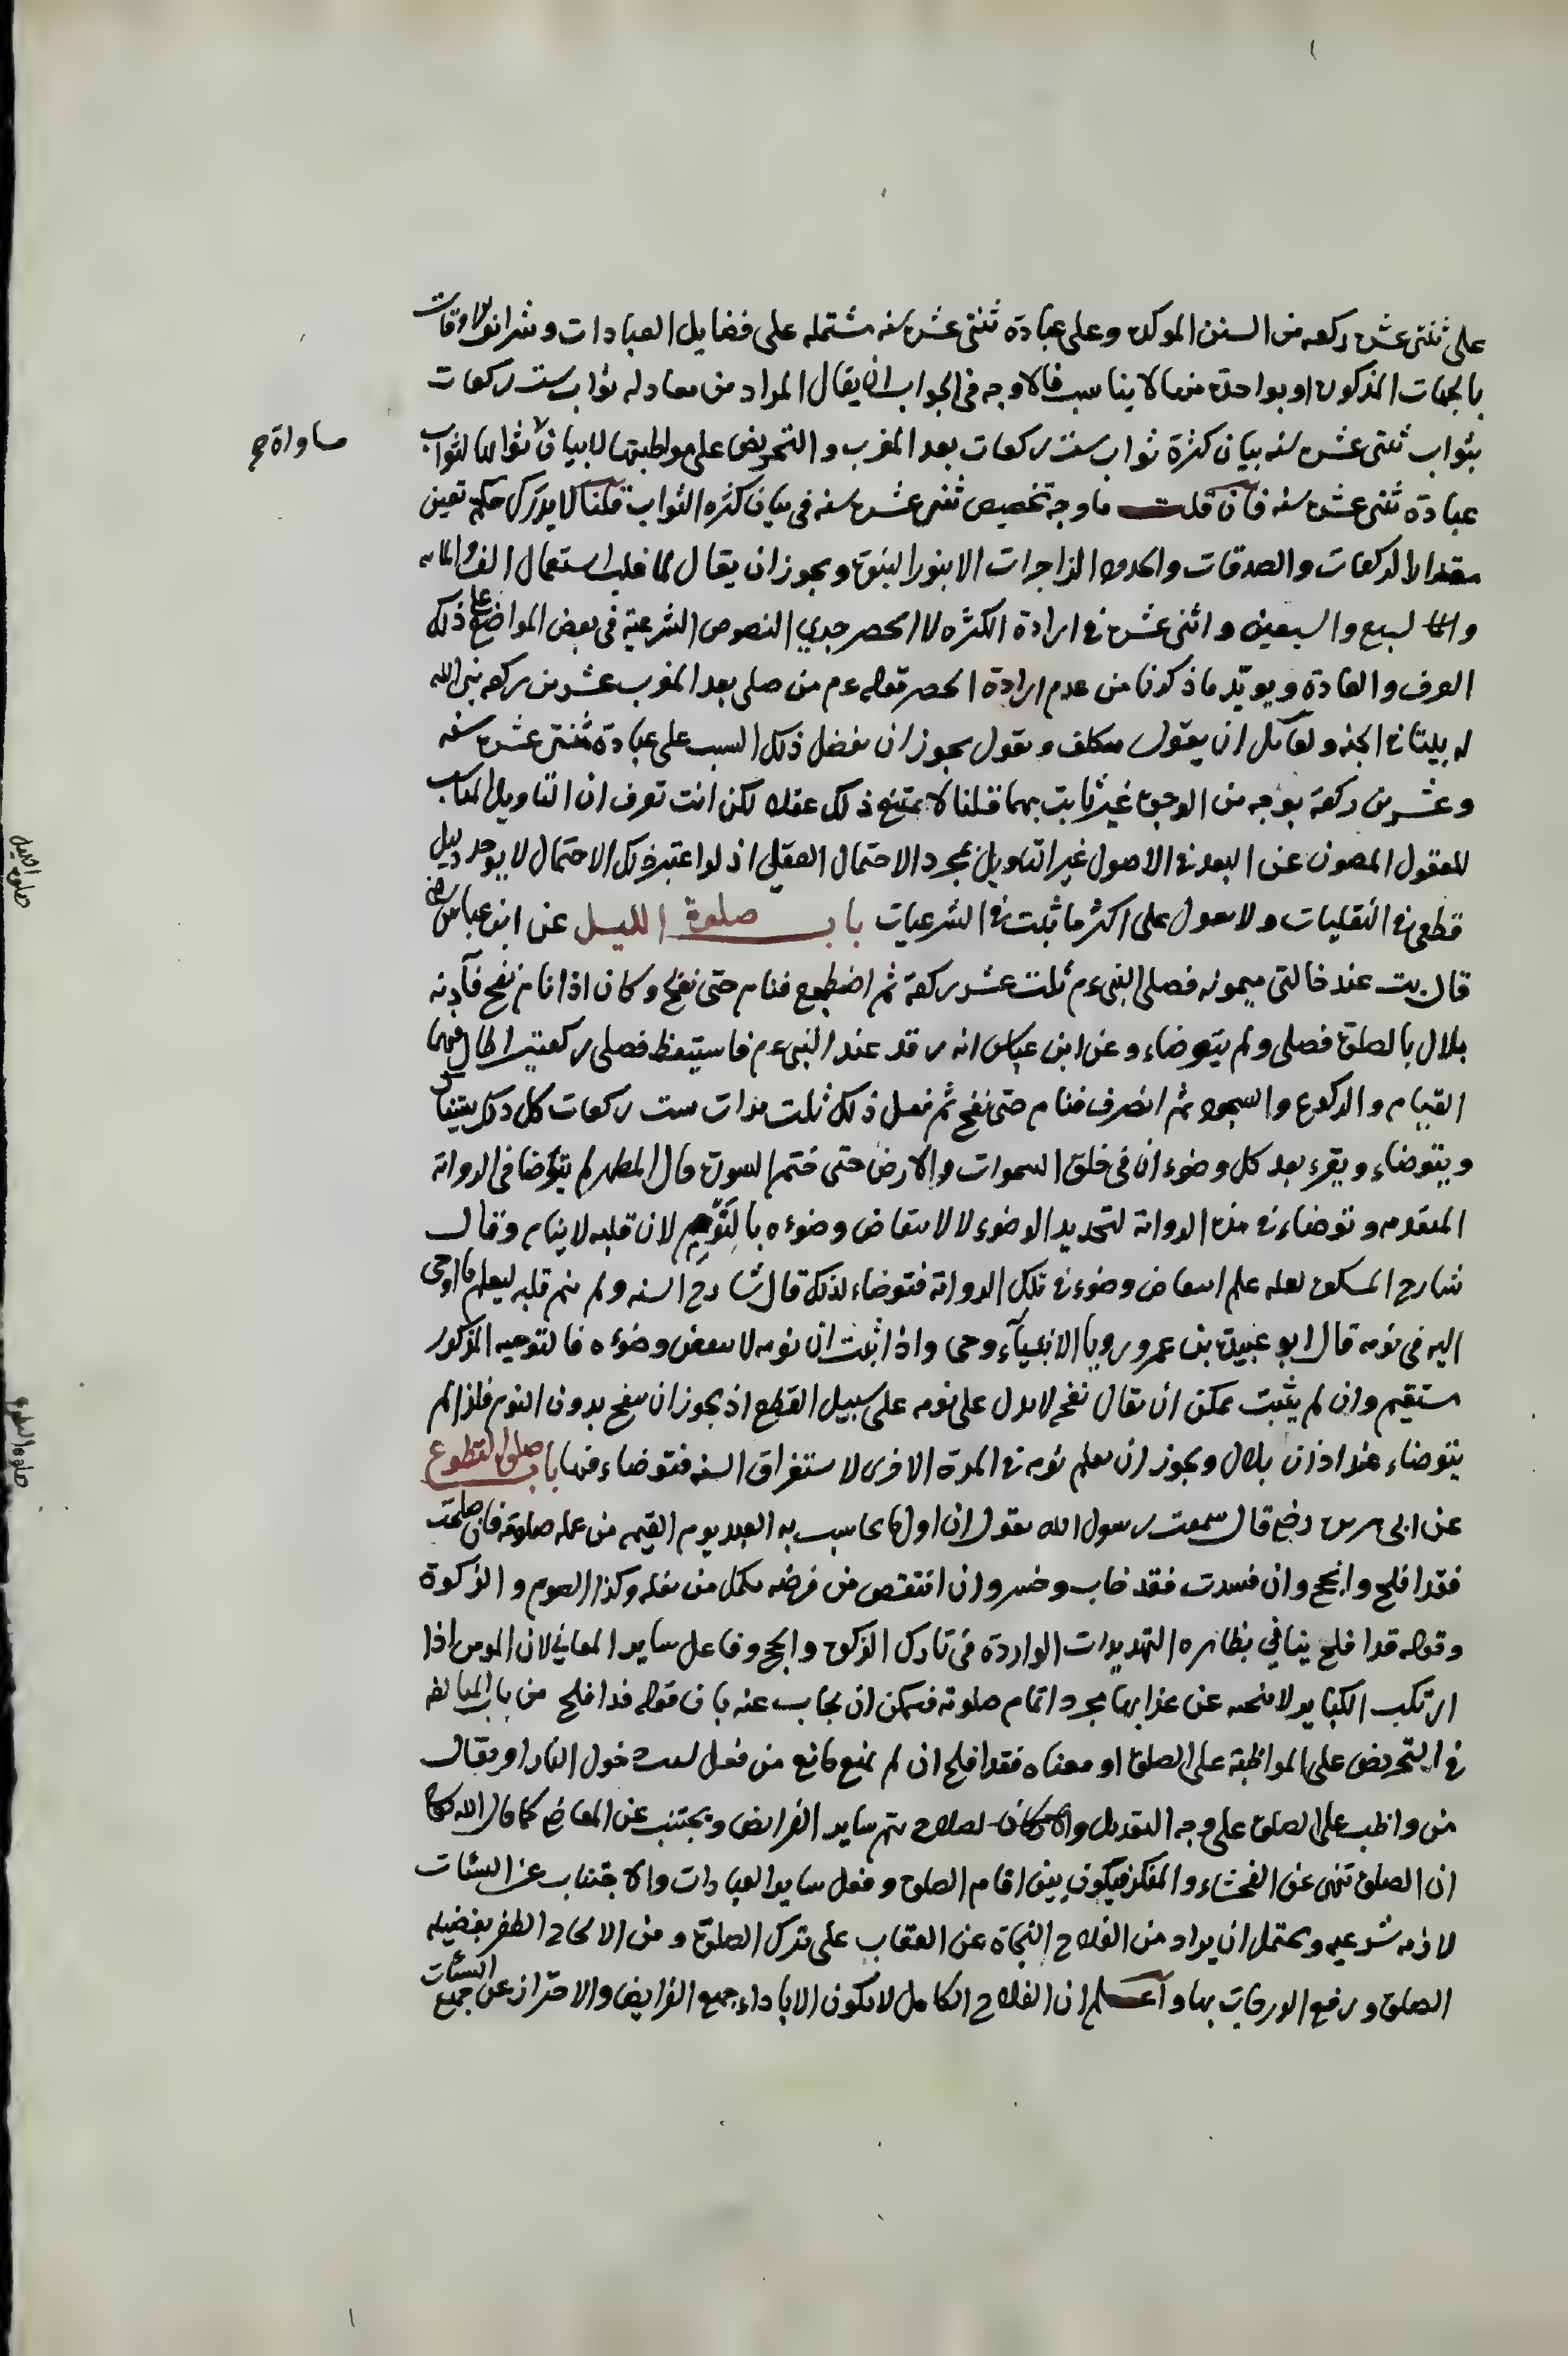 على ثنتي عشرة ركعه من السنن الموكده وعلى عبادة ثنتى عشرة سنه مشتمله على فضايل العبادات وشرائف الاوقات
بالجهات المذكوره او بواحدة منها لا يناسب فالاوجه فى الجواب ان يقال المراد من معادله ثواب ست ركعات
بثواب ثنتى عشره سنه بيان كثرة ثواب ست ركعات بعد المغرب والتحريض على مواظبتها لا بيان ثوابها لثواب
مساواة صح
عبادة ثنتى عشره سنه فان قلت ما وجه تخصيص ثنتى عشره سنه فى بيان كثره الثواب قلنا لا يدرك حكم تعين
مقدار الركعات والصدقات والحدود الزاجرات الا بنور النبوة ويجوز ان يقال لما غلب استعمال الف والمايه
والسبع والسبعين واثنى عشره فى ارادة الكثره لا الحصر جرى النصوص الشرعية فى بعض المواضع على ذلك
العرف والعادة ويويد ما ذكرنا من عدم ارادة الحصر قوله عم من صلى بعد المغرب عشرين ركعه بنى الله
له بيتا فى الجنه ولقائل ان يقول يتكلف ويقول يجوز ان يفضل ذلك السبب على عبادة ثنتى عشره سنه
وعشرين ركعة بوجه من الوجوه غير ثابت بهما قلنا لا يمتنع ذلك عقلا لكن انت تعرف ان التاويل المناسب
للمعقول المصون عن البعد فى الاصول غير التاويل بمجرد الاحتمال العقلى اذ لو اعتبر ذلك الاحتمال لا يوجد دليل
قطعى فى النقليات ولا يعول على اكثر ما ثبت فى الشرعيات باب صلوة الليل عن ابن عباس رضى
قال بت عند خالتى ميمونه فصلى النبى عم ثلث عشر ركعة ثم اضطجع فنام حتى نفخ وكان اذا نام نفخ فآذنه
بلال بالصلوة فصلى ولم يتوضاء وعن ابن عباس انه رقد عند النبى عم فاستيقظ فصلى ركعتين اطال فيهما
القيام والركوع والسجود ثم انصرف فنام حتى نفخ ثم فعل ذلك ثلث مرات ست ركعات كل ذلك يستاك
ويتوضاء ويقرء بعد كل وضوء ان فى خلق السموات والارض حتى ختم السورة قال المطهر لم يتوضا فى الرواية
المتقدمه وتوضاء فى هذه الرواية لتجديد الوضوء لا لانتقاض وضوءه بالنوم لان قلبه لا ينام وقال
شارح المشكوة لعله علم انتقاض وضوء فى تلك الرواية فتوضاء لذلك قال شارح السنه ولم ينم قلبه ليعلم ما اوحى
اليه فى نومه قال ابو عبيدة بن عمر رويا الانبياء وحى واذا ثبت ان نومه لا ينقض وضوءه فالتوجيه المذكور
مستقيم وان لم يثبت يمكن ان يقال نفخ لا يدل على نومه على سبيل القطع اذ يجوز ان ينفخ بدون النوم فلذا لم
يتوضاء عند اذان بلال ويجوز ان يعلم نومه فى المرة الاخرى لاستغراق السنه فتوضاء فيها باب صلوة التطوع
عن ابى هريره رضى قال سمعت رسول الله يقول ان اول ما يحاسب به العبد يوم القيمه من عمله صلوته فان صلحت
فقد افلح وانجح وان فسدت فقد خاب وخسر وان انتقص من فرضه يكمل من نفله وكذا الصوم والزكوة
وقوله قد افلح ينافى بظاهره التهديدات الواردة فى تارك الزكوة والحج وفاعل ساير المعاصي لان المومن اذا
ارتكب الكباير لا ينجيه عن عذابها مجرد اتمام صلوته فيمكن ان يجاب عنه بان قوله قد افلح من باب المبالغه
فى التحريض على المواظبة على الصلوة او معناه فقد افلح ان لم يمنع مانع من فعل لسبب دخول النار او يقال
من واظب على الصلوة على وجه التعديل يتم ساير الفرايض ويجتنب عن المعاصى كما قال الله تعالى
ان الصلوة تنهى عن الفحشاء والمنكر فيكون بين اقام الصلوة وفعل ساير العبادات والاجتناب عن السئات
لازمه شرعيه ويحتمل ان يراد من الفلاح النجاة عن العقاب على ترك الصلوة ومن الانجاح الظفر بفضيله
الصلوة ورفع الدرجات بها واعلم ان الفلاح الكامل لا يكون الا باداء جميع الفرايض والاحتراز عن جميع السئات
صلوة الليل
صلوة التطوع